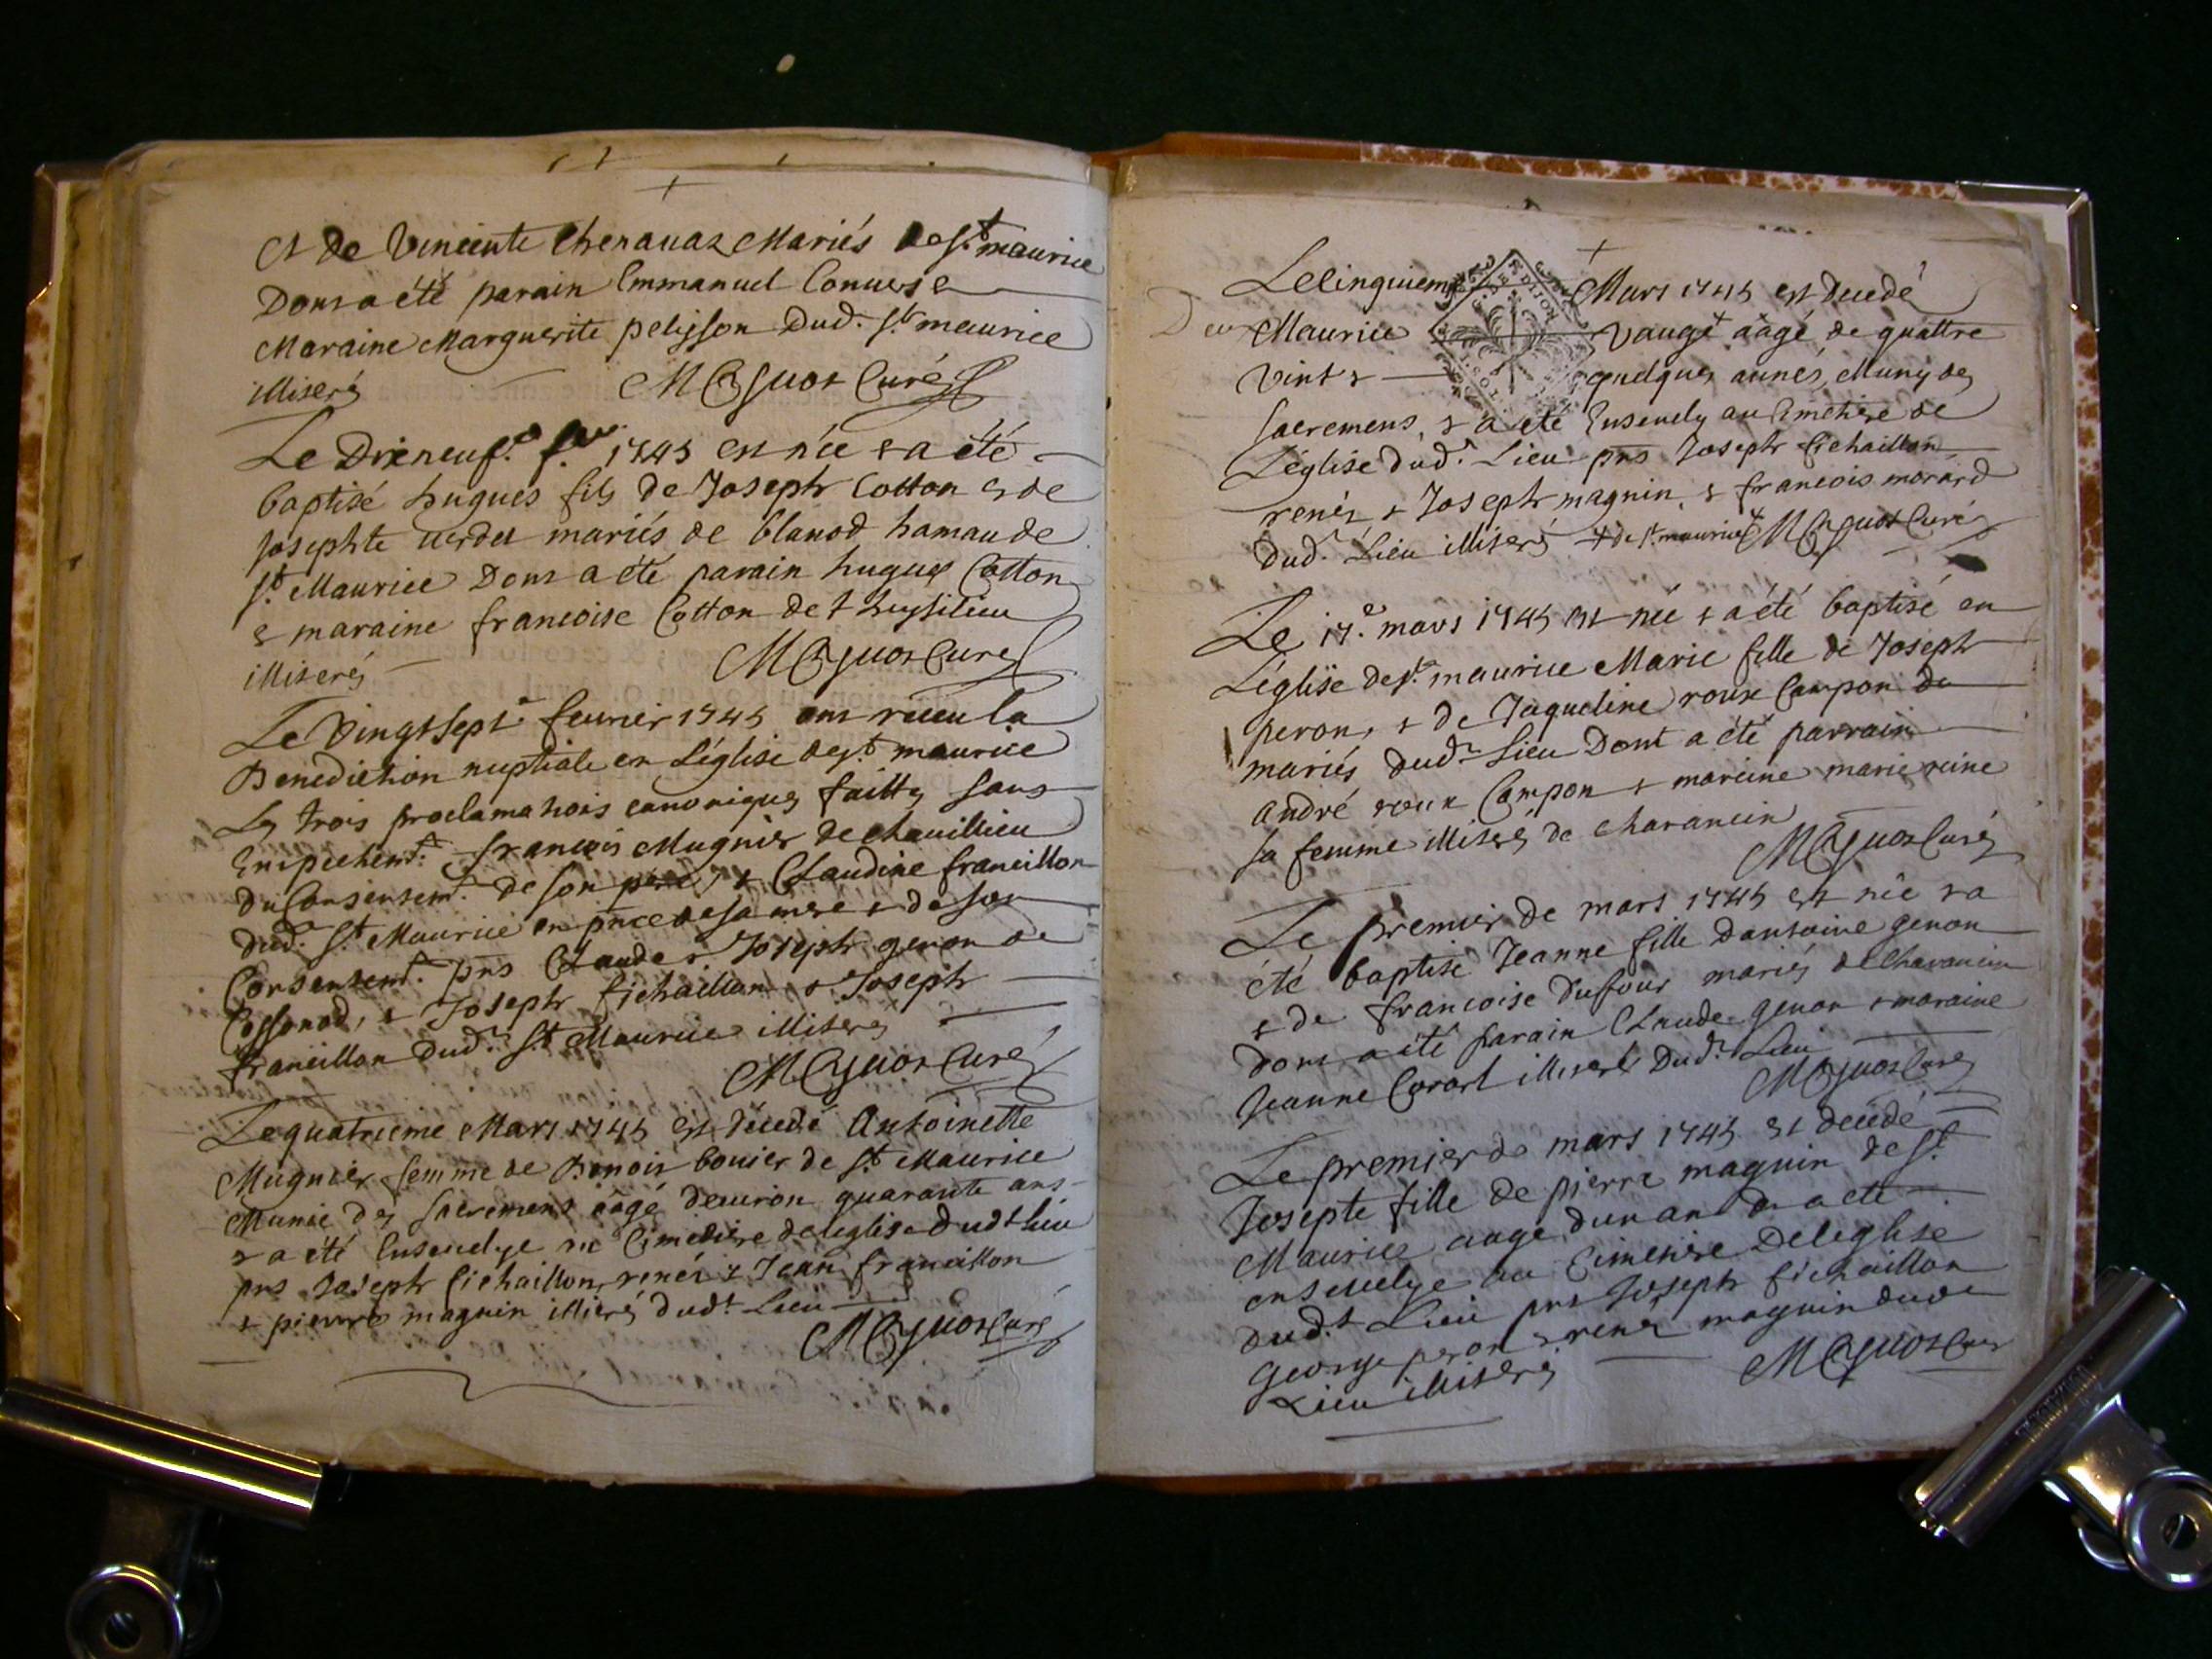 Et de Vincente Chenavaz Mariés de st maurice
Dont a été parain Emmanuel Converse
Maraine Marguerite pelisson dud. st maurice
illiserés MGJuot Curé
Le Dixneuf.e 1745 est née & a été
baptisé hugues fils de Joseph Cotton & de
Josephte verdet mariés de blanod hamau de
st. Maurice Dont a été parain hugues Cotton
& maraine francoise Cotton de thuysilieu
illiserés MGJuot Curé
Le Vingtsept.e fevrier 1745 ont receu la
Benediction nuptiale en L'église de st maurice
Les trois proclamations canoniques faittes sans
Empechemt. francois Mugnier de chavillieu
Du Consentemt. de son pere, & Claudine francillon
dud.t st Maurice en pnce de sa mere & de son
Consentemt. pns Claude & Joseph genon de
Cossonod, & Joseph fichaillon & Joseph
francillon dud.t st Maurice illiserés
MGJuot Curé
Le quatrieme Mars 1745 est décedé Antoinette
Mugnier femme de Benoit bovier de st Maurice
Munie des sacremens aâgé denviron quarante ans
& a été Ensevelye au Cimetiere de leglise dudt lieu
pns Joseph fichaillon, renés & Jean francillon
& pierre magnin illiserés dudt. Lieu
MGJuot Curé
Le cinquieme Mars 1745 est decedé
Maurice vauge aâgé de quattre
vints & quelques annés, Muny des
sacremens, & a été Ensevely au Cimetiere de
L'église dud.t Lieu pns Joseph fichaillon
renés & Joseph magnin, & francois morard
dud.t Lieu illiserés + de st. maurice MGJuot Curé
Le 17.e mars 1745 est née & a été baptisé en
L'église de st. maurice Marie fille de Joseph
peron, & de Jaqueline roux Campon du
mariés dud.t Lieu Dont a été parrain
André roux Campon & maraine marie reine
sa femme illiserés de charancin
MGJuot Curé
Le premier de mars 1745 est née & a
été baptisé Jeanne fille dantoine genon
& de francoise dufour mariés de Charancin
dont a été parain Claude genon & maraine
Jeanne Carart illiserés dud.t Lieu
MGJuot Curé
Le premier de mars 1745 est decedé
Josepte fille de pierre magnin de st.
Maurice aagé dun an & a eté
ensevelye au Cimetiere de leglise
dud.t Lieu pns Joseph fichaillon
George peron & renés magnin dud
Lieu illiserés MGJuot Curé